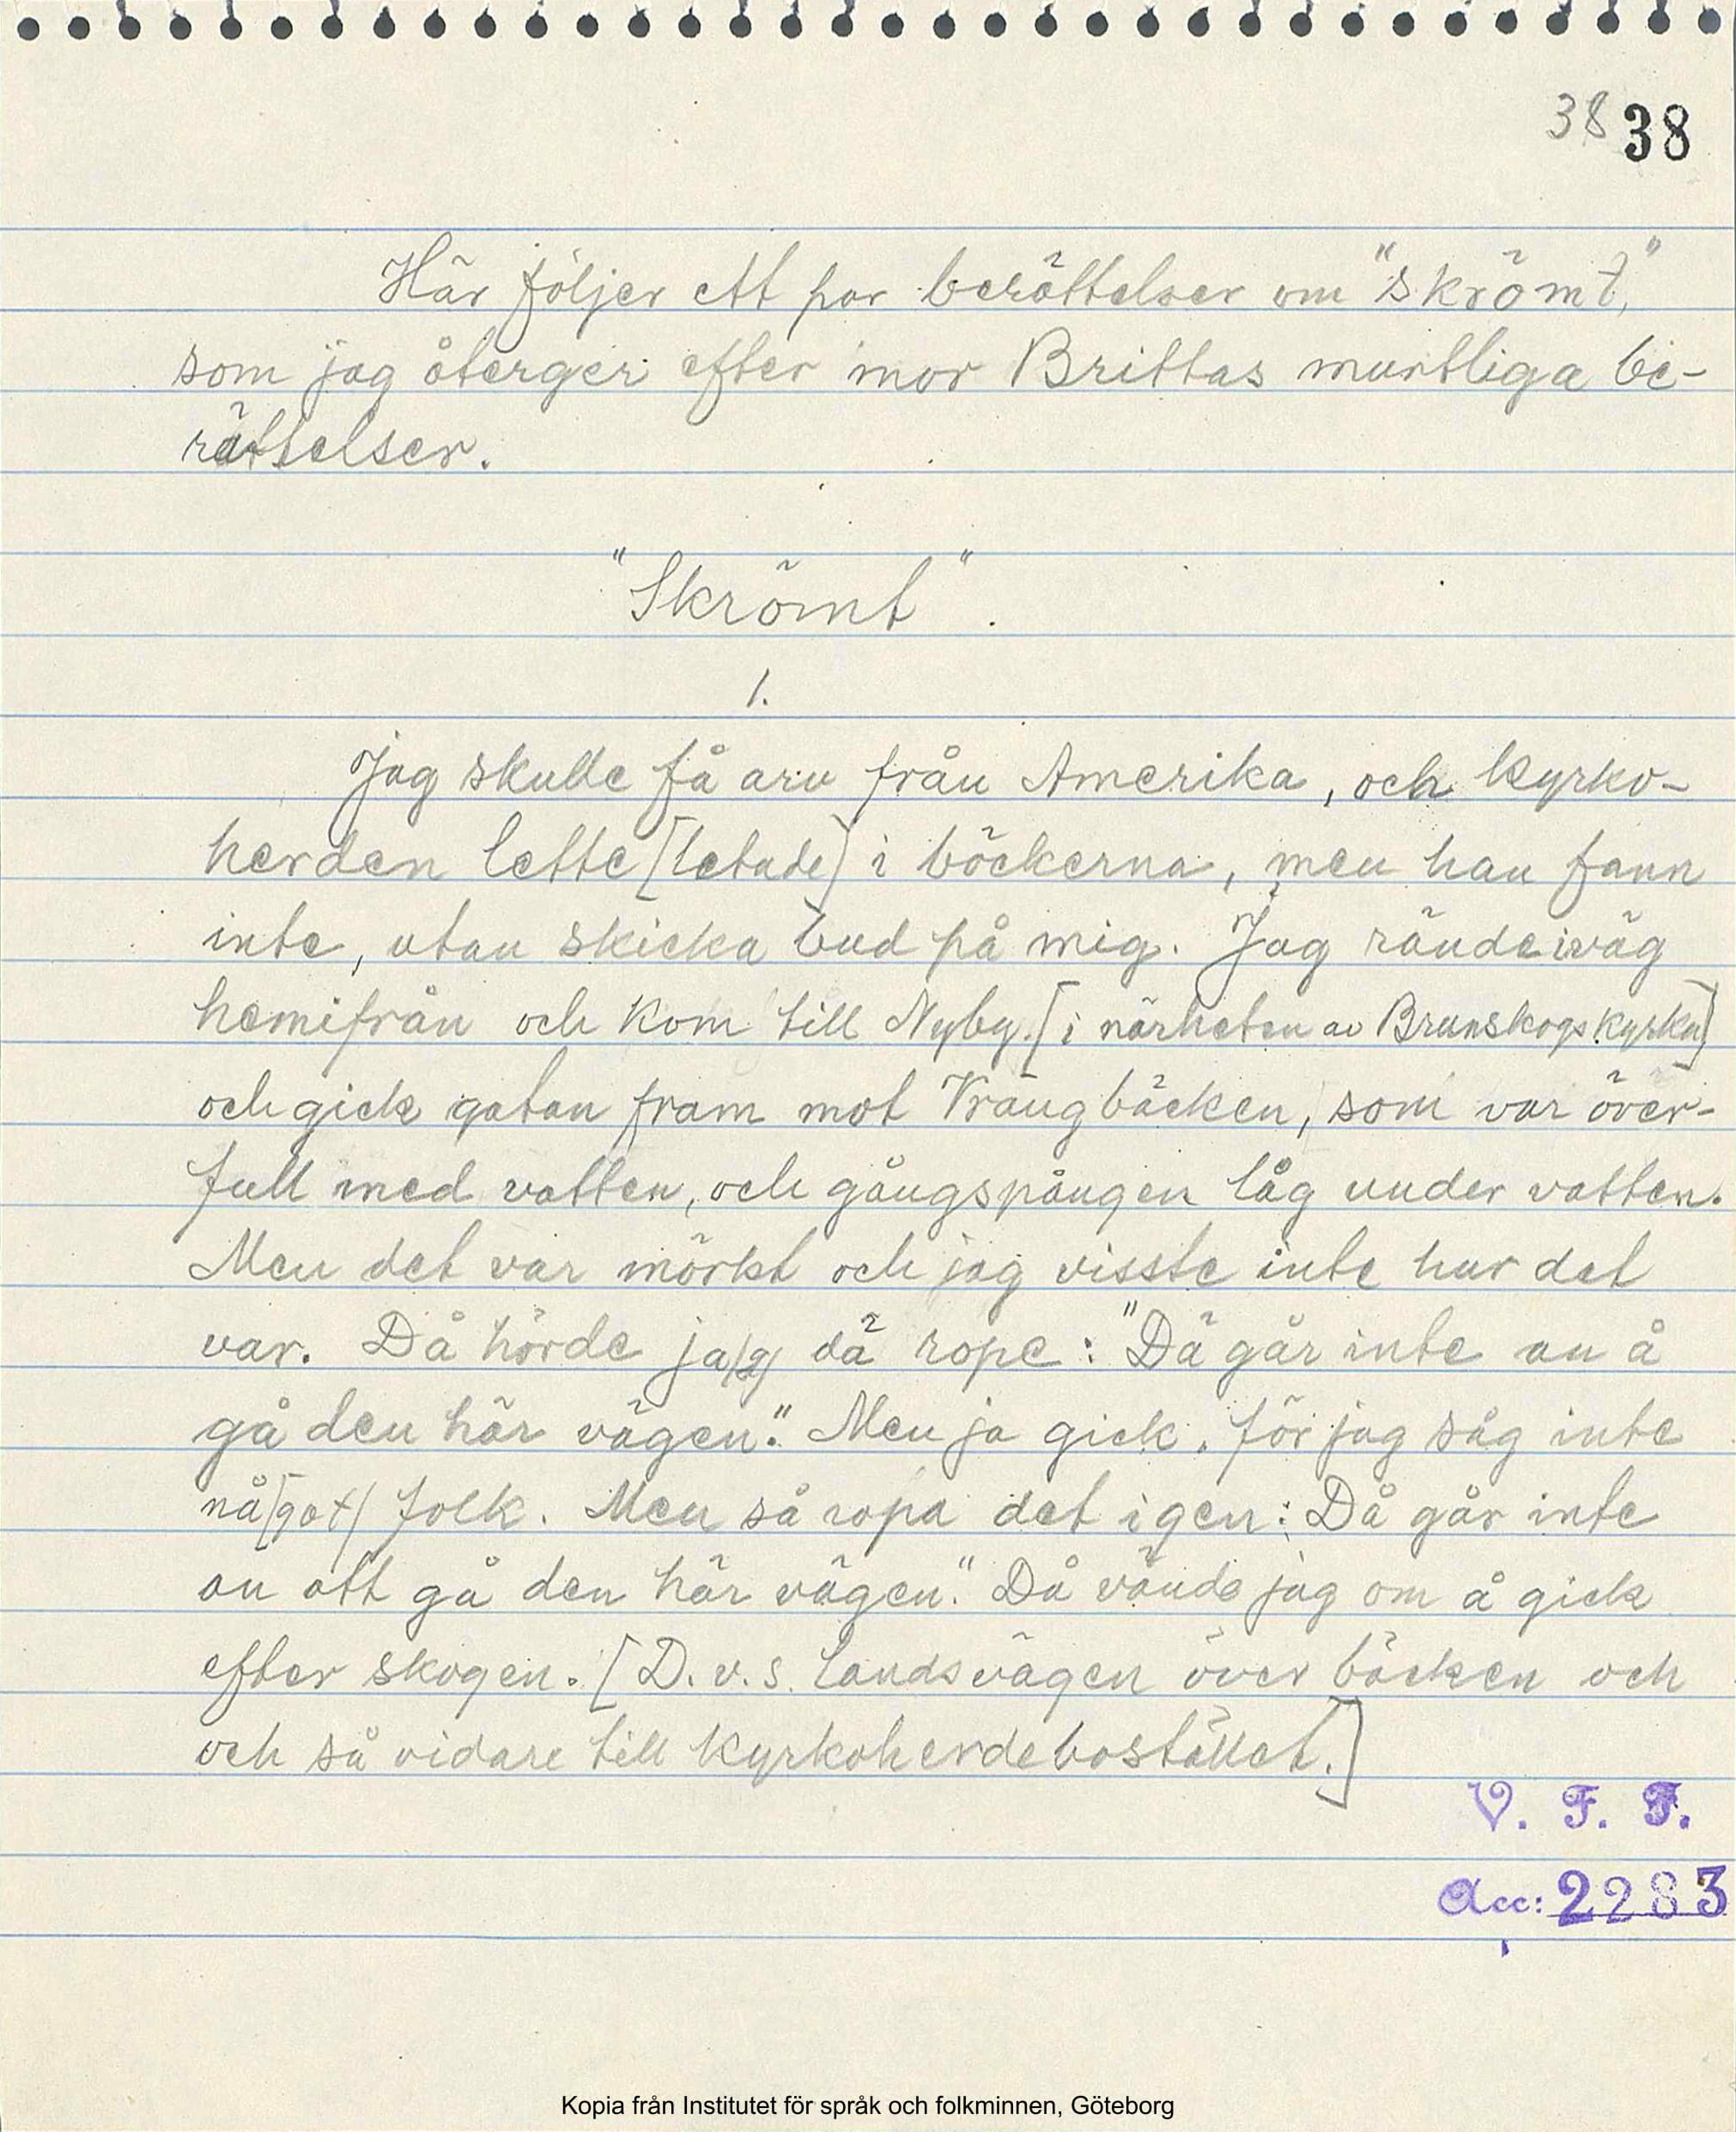 38 38
Här följer ett par berättelser om "skrömt,"
som jag återger efter mor Brittas muntliga be-
rättelser.
"Skrömt".
1.
Jag skulle få arv från Amerika, och kyrko-
herden lette [letade] i böckerna, men han fann
inte, utan skicka bud på mig. Jag rände iväg
hemifrån och kom till Nyby. [i närheten av Brunskogs kyrka]
och gick gatan fram mot Vrångbäcken, som var över-
full med vatten, och gångspången låg under vatten.
Men det var mörkt och jag visste inte hur det
var. Då hörde ja/g/ dä rope: "Dä går inte an å
gå den här vägen." Men ja gick, för jag såg inte
nå/got/ folk. Men så ropa det igen: Dä går inte
an att gå den här vägen." Då vände jag om å gick
efter skogen. [D.v.s. landsvägen över bäcken och
och så vidare till kyrkoherdebostället.]
V. F. F.
Acc: 2283
Kopia från Institutet för språk och folkminnen, Göteborg